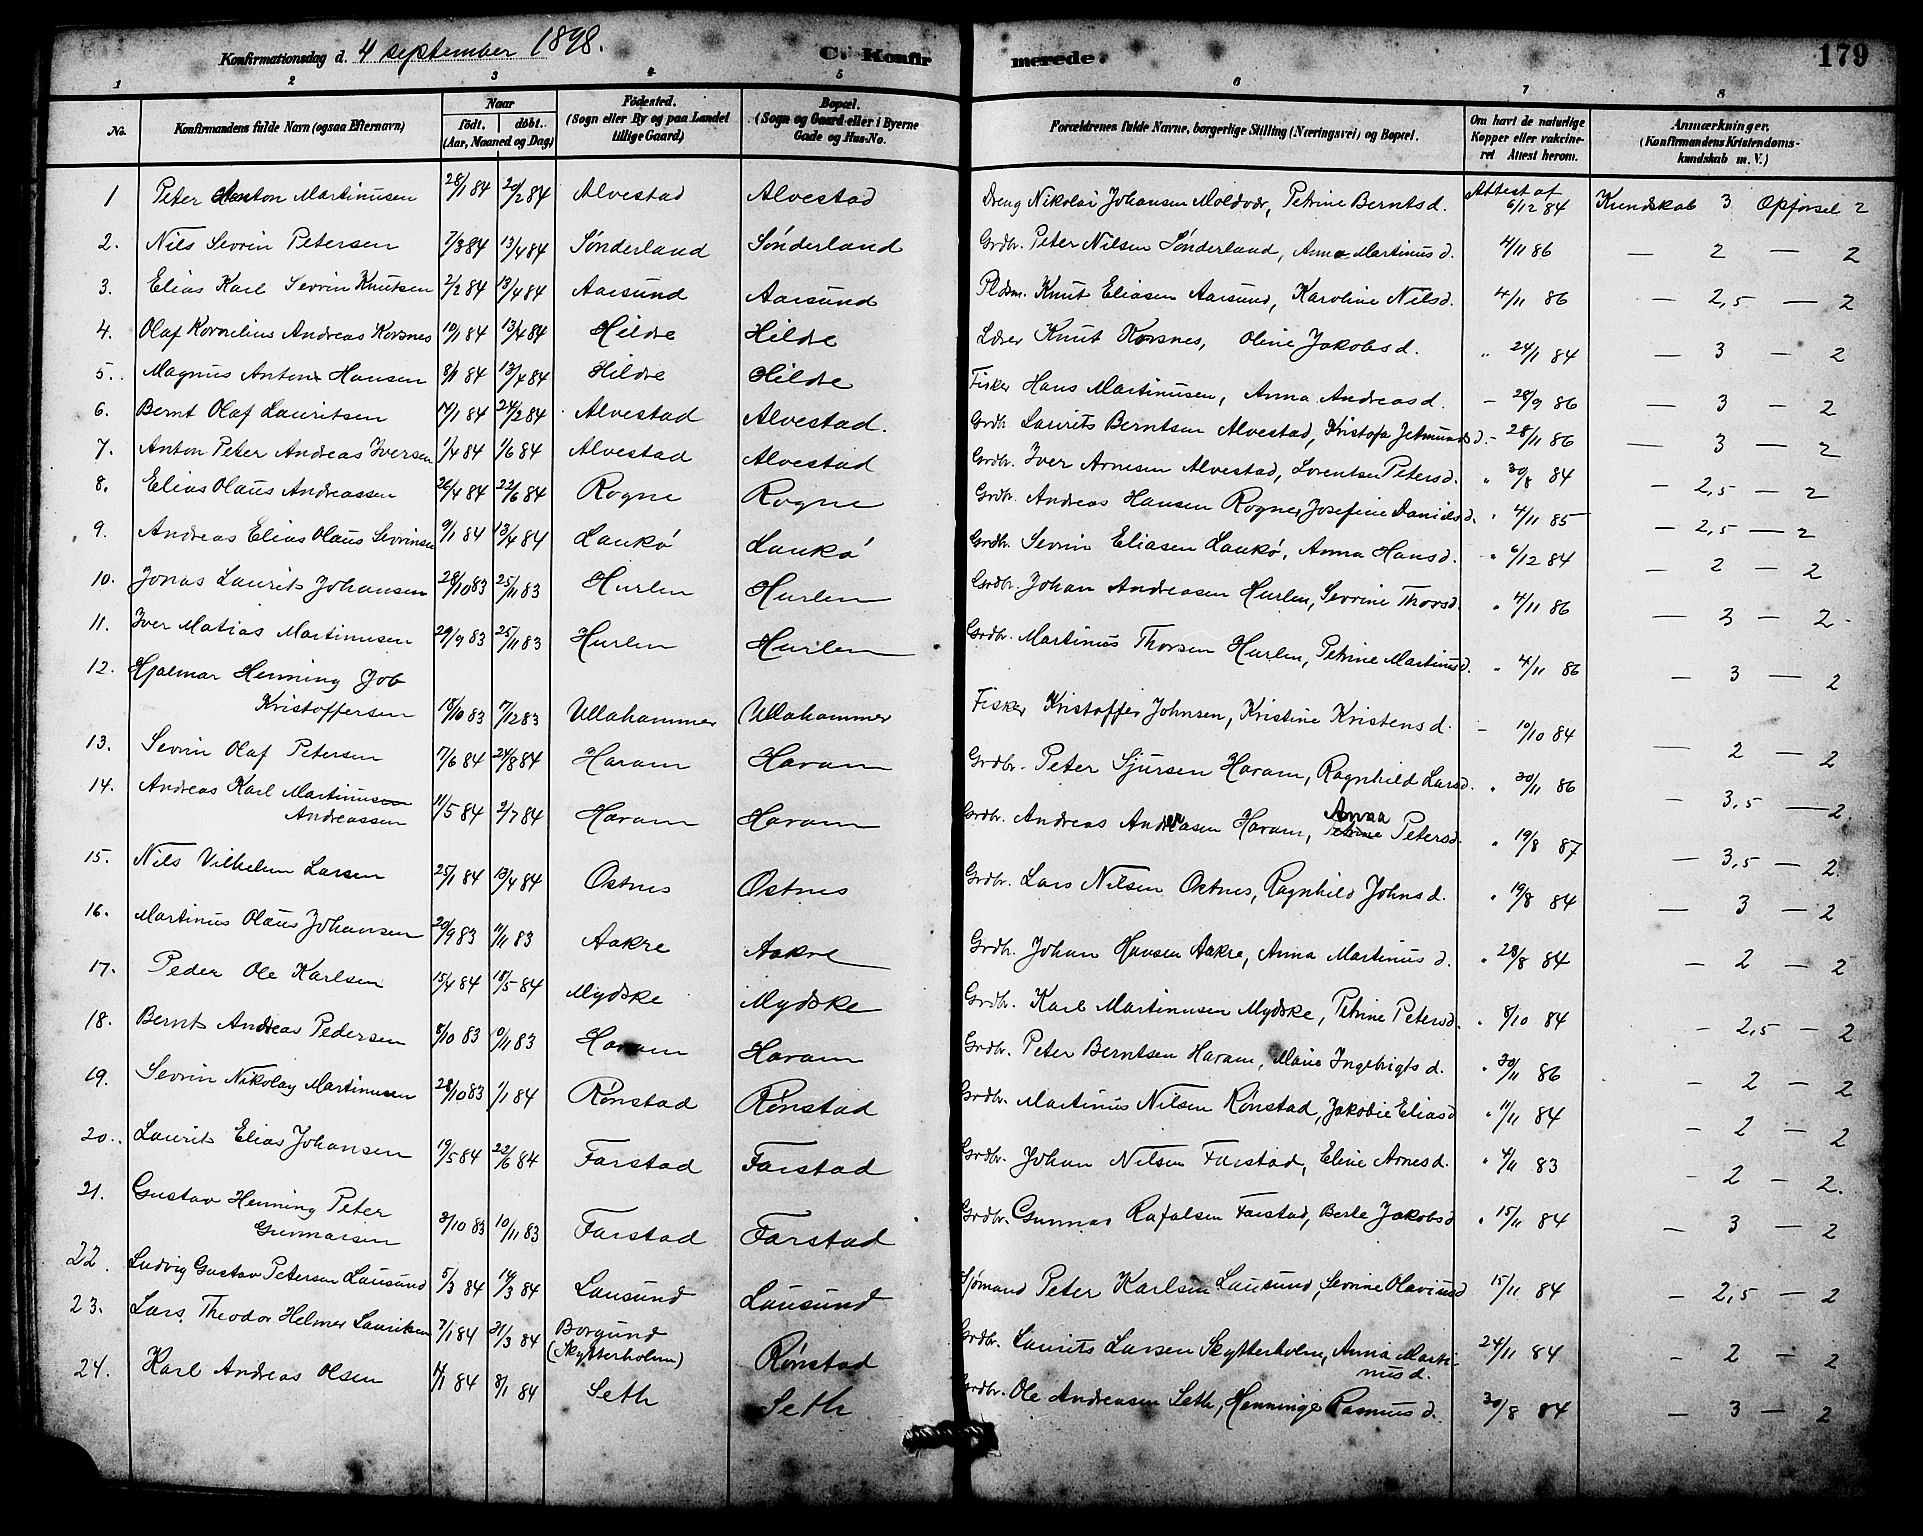 Konfirmationsdag d. 4 september 1898.
C. Konfirmerede.
179
1 2 3 4 5 6 7 8
No. Konfirmandens fulde Navn (ogsaa Efternavn) Naar født. døbt. (Aar, Maaned og Dag) Fødested. (Sogn eller By og paa Landet tillige Gaard) Bopæl. (Sogn og Gaard eller i Byerne Gade og Hus-No. Forældrenes fulde Navne, borgerlige Stilling (Næringsvei) og Bopæl. Om havt de naturlige Kopper eller vakcineret Attest herom. Anmærkninger. (Konfirmandens Kristendomskundskab m. V.)
1 Peter Anton Martinusen 28/1 84 20/2 84 Alvestad Alvestad Dreng Nikolai Johansen Moldvær, Petrine Bernts d. Attest af 6/12 84 Kundskab 3 Opførsel 2
2. Nils Sevrin Petersen 7/3 84 13/4 84 Sønderland Sønderland Grdbr. Peter Nilsen Sønderland, Anna Martinus d. 4/11 86 — 2 — 2
3. Elias Karl Sevrin Knutsen 2/2 84 13/4 84 Aarsund Aarsund Pldsm. Knut Eliasen Aarsund, Karoline Nilsd. 4/11 86 — 2,5 — 2
4. Olaf Kornelius Andreas Korsnes 10/1 84 13/4 84 Hildre Hildre Lærer Knut Korsnes, Oline Jakobsd. " 24/1 84 — 3 — 2
5. Magnus Anton Hansen 8/1 84 13/4 84 Hildre Hildre Fisker Hans Martinusen, Anna Andreasd. — 28/9 86 — 3 — 2
6. Bernt Olaf Lauritsen 14/1 84 24/2 84 Alvestad Alvestad. Grdbr. Laurits Berntsen Alvestad, Kristofa Jetmunds d. - 28/11 86 — 3 — 2
7. Anton Peter Andreas Iversen 1/4 84 1/6 84 Alvestad Alvestad Grdbr. Iver Arnesen Alvestad, Lorentse Petersd. " 30/8 84 — 2,5 — 2
8. Elias Olaus Andreassen 26/4 84 22/6 84 Rogne Rogne Grdbr. Andreas Hansen Rogne, Josefine Daniels d. " 4/11 85 — 2,5 — 2
9. Andreas Elias Olaus Sevrinsen 9/1 84 13/4 84 Laukø Laukø Grdbr. Sevrin Eliasen Laukø, Anna Hans d. " 6/12 84 — 2 — 2
10. Jonas Laurits Johansen 28/10 83 25/11 83 Hurlen Hurlen Grdbr. Johan Andreasen Hurlen, Sevrine Thorsd. " 4/11 86 — 3 — 2.
11. Iver Matias Martinusen 29/9 83 25/11 83 Hurlen Hurlen Grdbr. Martinus Thorsen Hurlen, Petrine Martinusd. " 4/11 86 — 3 — 2
12. Hjalmar Henning Job
Kristoffersen 18/10 83 7/12 83 Ullahammer Ullahammer Fisker Kristoffer Johnsen, Kristine Kristens d. — 10/10 84 — 2 — 2
13. Sevrin Olaf Petersen 7/6 84 24/8 84 Haram Haram Grdbr. Peter Sjursen Haram, Ragnhild Larsd. " 30/11 86 — 3,5 — 2.
14. Andreas Karl Martinusen
Andreassen 11/5 84 2/7 84 Haram Haram Grdbr. Andreas Andreasen Haram, Anna Petersd. " 19/8 87 — 3,5 — 2.
15. Nils Vilhelm Larsen 25/1 84 13/4 84 Ostnes Ostnes Grdbr. Lars Nilsen Ostnes, Ragnhild Johns d. " 19/8 84 — 3 — 2
16. Martinus Olaus Johansen 20/9 83 11/11 83 Aakre Aakre Grdbr. Johan Hansen Aakre, Anna Martinus d. " 28/8 84 — 2 — 2
17. Peder Ole Karlsen 15/4 84 18/5 84 Mydske Mydske Grdbr. Karl Martinusen Mydske, Petrine Petersd. " 8/10 84 — 2,5 — 2
18. Bernt Andreas Pedersen 8/10 83 10/11 83 Haram Haram Grdbr. Peter Berntsen Haram, Marie Ingebrigts d. " 30/11 86 — 2 — 2
19. Sevrin Nikolay Martinusen 28/10 83 1/1 84 Rønstad Rønstad Grdbr. Martinus Nilsen Rønstad, Jakobie Elias d " 11/11 84 — 2 — 2
20. Laurits Elias Johansen 19/5 84 22/6 84 Farstad Farstad Grdbr. Johan Nilsen Farstad, Eline Arnes d. " 4/11 83 — 2 — 2.
21. Gustav Henning Peter
Gunnarsen 3/10 83 10/11 83 Farstad Farstad Grdbr. Gunnar Rafalsen Farstad, Berte Jakobs d " 15/11 84 — 3 — 2
22. Ludvig Gustav Petersen Lausund 5/3 84 14/3 84 Lausund Lausund Sjømand Peter Karlsen Lausund, Sevrine Olavius d 15/11 84 — 2,5 — 2
23. Lars Theodor Helmer Lauritsen 7/1 84 21/3 84 Borgund (Skytterholm) Rønstad Grdbr. Laurits Larsen Skytterholm, Anna Martinus d. 24/11 84 — 2 — 2
24. Karl Andreas Olsen 1/1 84 8/1 84 Seth Seth Grdbr. Ole Andreasen Seth, Henninge Rasmus d. 30/8 84 — 3 — 2